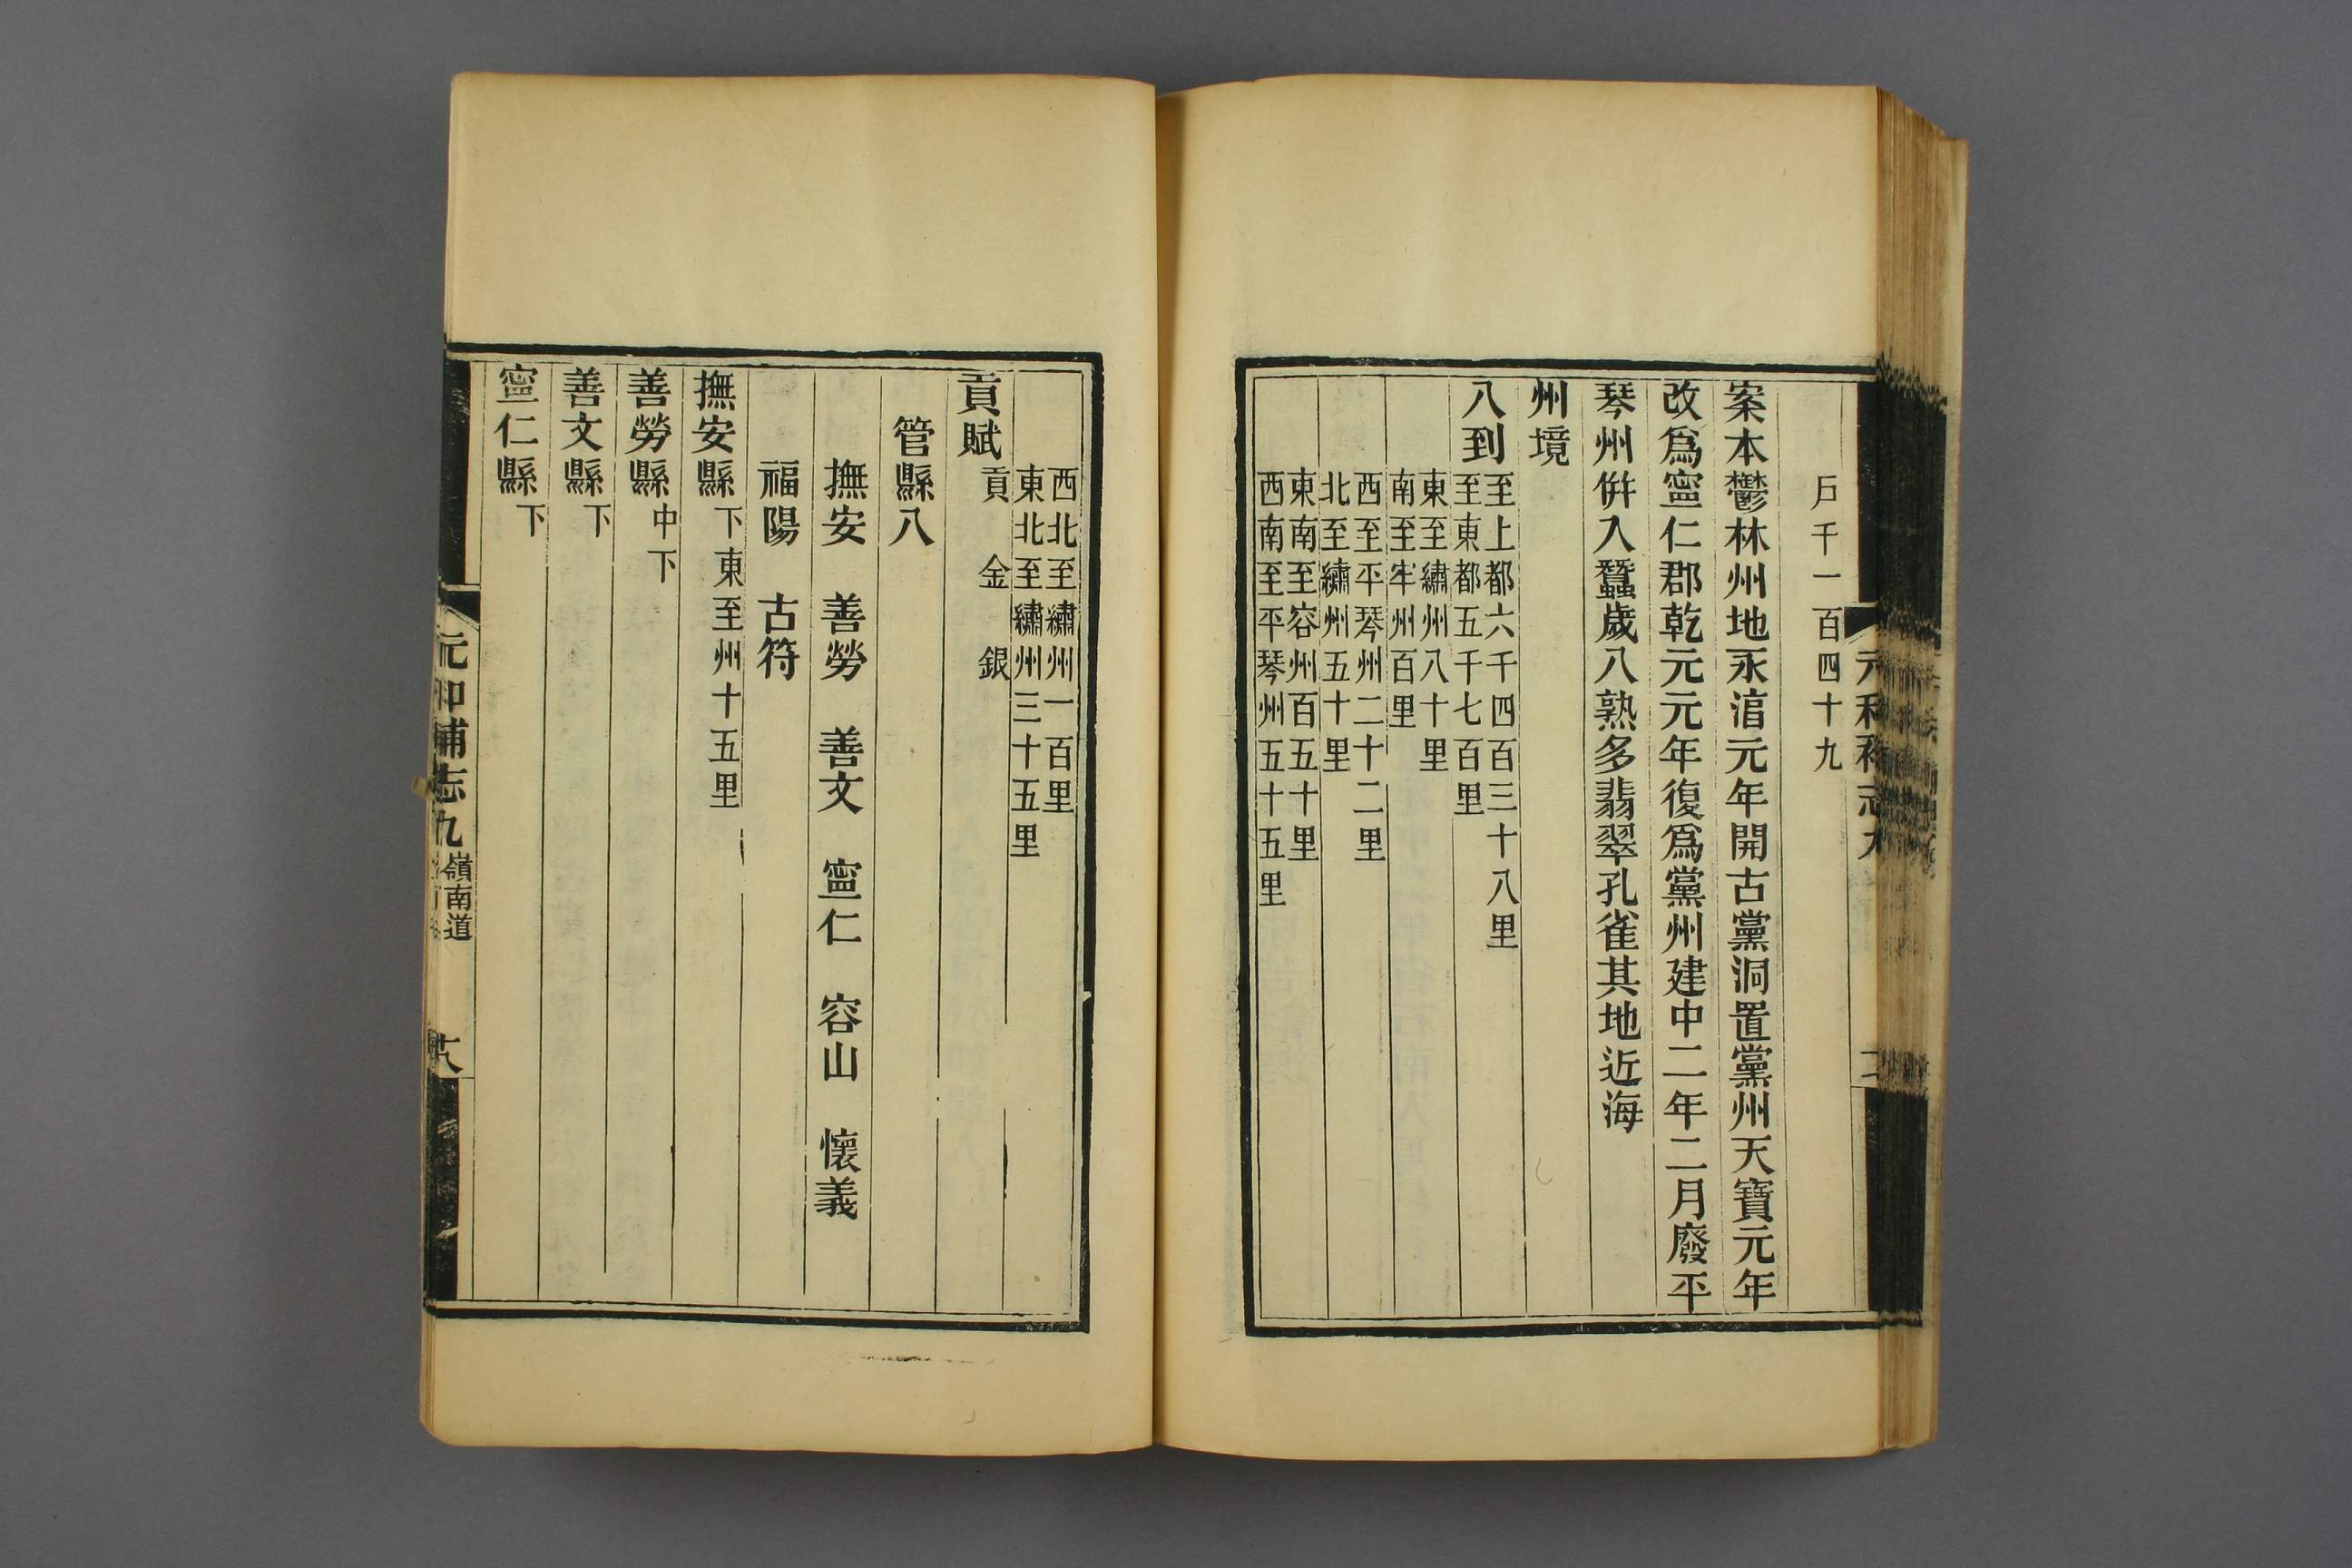 戶千一百四十九
案本鬱林州地永湻元年開古黨洞置黨州天寶元年
改爲寧仁郡乾元元年復爲黨州建中二年二月廢平
琴州併入蠶歲八熟多翡翠孔雀其地近海
州境
八到至上都六千四百三十八里
至東都五千七百里
東至繡州八十里
南至牢州百里
西至平琴州二十二里
北至繡州五十里
東南至容州百五十里
西南至平琴州五十五里
西北至繡州一百里
東北至繡州三十五里
貢賦貢 金 銀
管縣八
撫安 善勞 善文 寧仁 容山 懷義
福陽 古符
撫安縣下東至州十五里
善勞縣中下
善文縣下
寧仁縣下
元和補志九 嶺南道